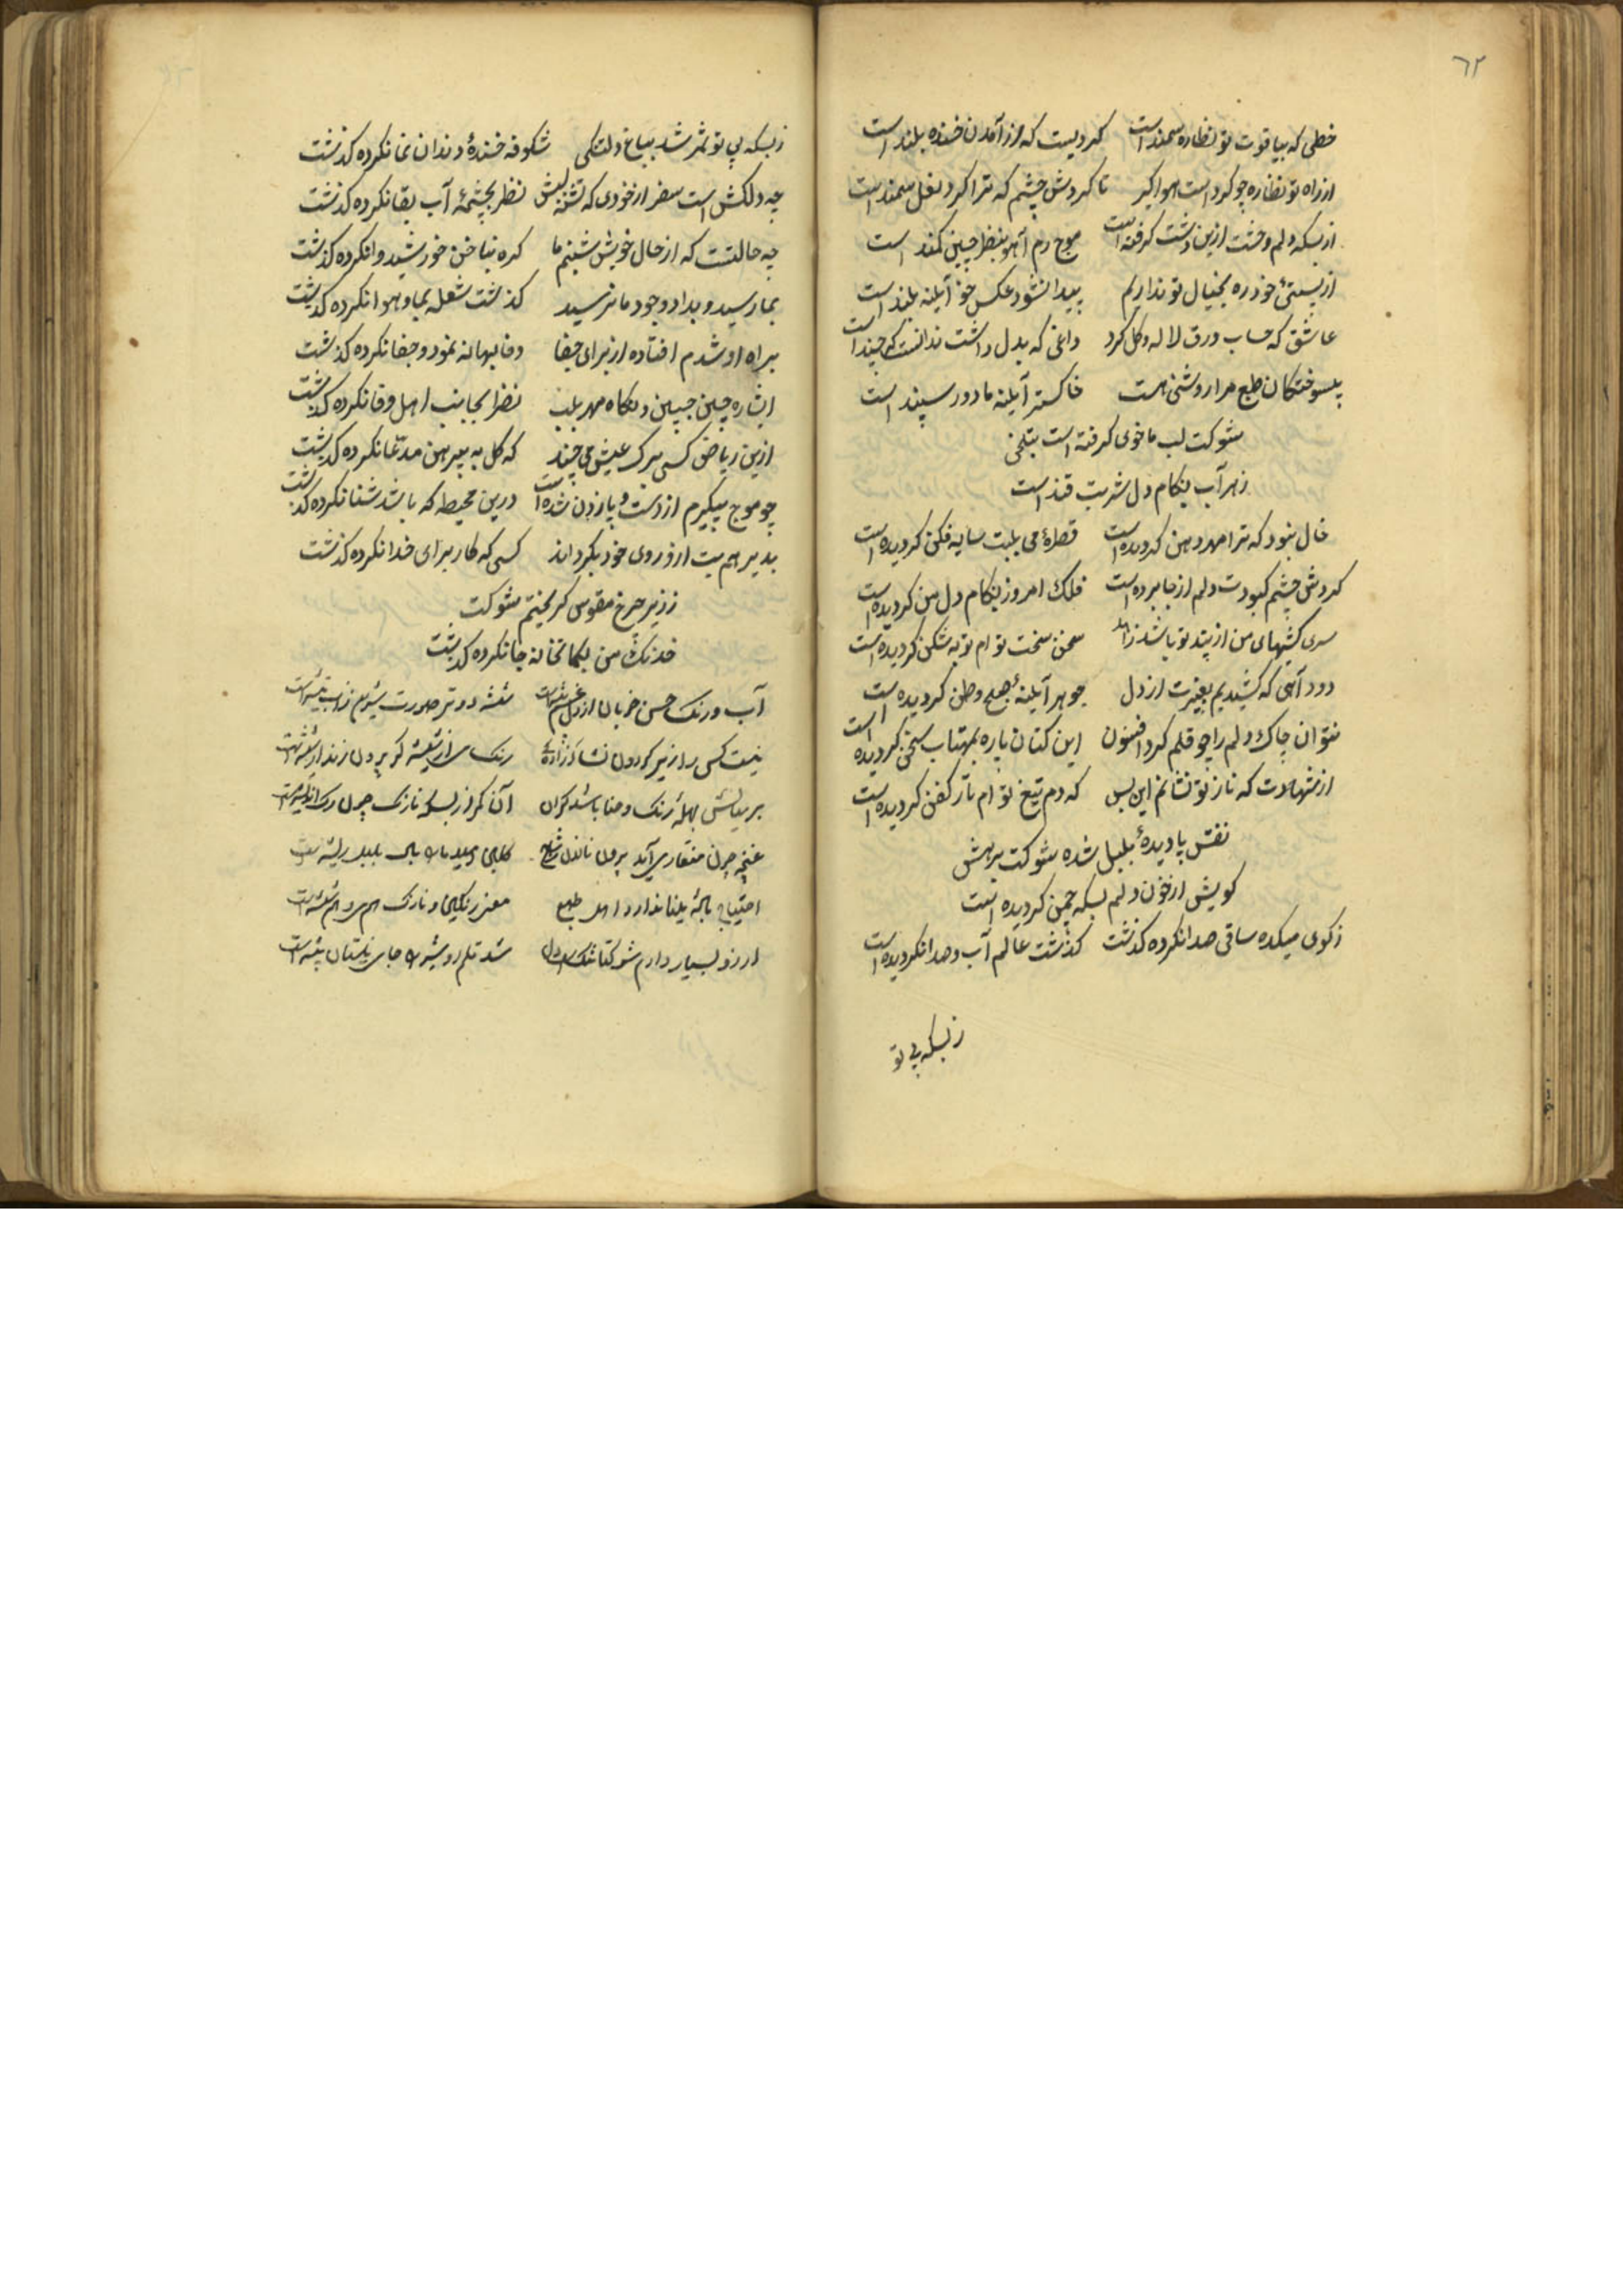 ٦٢
خطی که بیاقوت تو نظاره سمند است گردیست که از آمدن خنده بلند است
از راه تو نظاره چو گرد است هوا گیر تا گردش چشم که ترا گرد نعل سمند است
از بسکه دلم وحشت ازین دشت گرفته است موج رم آهو بنظر چین کمند است
از پستئ خود ره بخیال تو نداریم پیدا نشود عکس چو آیینه بلند است
عاشق که حساب ورق لاله و گل کرد داغی که بدل داشت ندانست که چند است
بسوختکان طبع مرا روشنی هست خاکستر آیینه ما دود سپند است
شوکت لب ما خوی گرفته است بتلخی
زهر آب بکام دل شربت قند است
خال نبود که ترا مهر دهن گردیده است قطرهٔ می بلبت سایه فکن گردیده است
گردش چشم کبودت دلم از جا برده است فلک امروز بکام دل من گردیده است
سرکشیهای من از پند تو باشد زاهد سخن سخت تو ام توبه شکن گردیده است
دود آهی که کشیدیم بغیرت از دل جوهر آیینهٔ صبح وطن گردیده است
نتوان چاک دلم را چو قلم کرد افسون این کتان پاره بمهتاب سخن گردیده است
از شهادت که ناز تو نشانم این بس که دم تیغ تو ام تار کفن گردیده است
نقش پا دیدهٔ بلبل شده شوکت برهش
کویش از خون دلم بسکه چمن گردیده است
ز کوی میکده ساقی صدا نکرده گذشت گذشت عالم آب و صدا نکردیده است
زبسکه بی تو
زبسکه بی تو ثمر شد بباغ دلتنگی شکوفه خندهٔ دندان نما نکرده گذشت
چه دلکش است سفر از خودی که تشنه لبش نظر بچشمهٔ آب بقا نکرده گذشت
چه حالتست که از حال خویش شبنم ما گره بناخن خورشید وا نکرده گذشت
بما رسید و بداد وجود ما نرسید گذشت شعله بما و هوا نکرده گذشت
براه او شدم افتاده از برای جفا وفا بهانه نمود و جفا نکرده گذشت
اشاره چین جبین و نگاه مهر بلب نظر بجانب اهل وفا نکرده گذشت
ازین ریاض کسی برگ عیش می چیند که گل به پیرهن مدعا نکرده گذشت
چو موج میگیرم از دست و پا زدن شده است درین محیط که باشد شنا نکرده گذشت
بدیر هم بت ازو روی خود بگرداند کسی که کار برای خدا نکرده گذشت
ز زیر چرخ مقوس گریختم شوکت
خدنگ من بکمانخانه جا نکرده گذشت
آب و رنگ حسن خوبان از دل
نیست کسی را زیر گردون
بر میانش بهلهٔ رنگ و حنا باشد گران
غنچه چون منقار می آید برون
احتیاج
آرزو بسیار دارم شوکتا